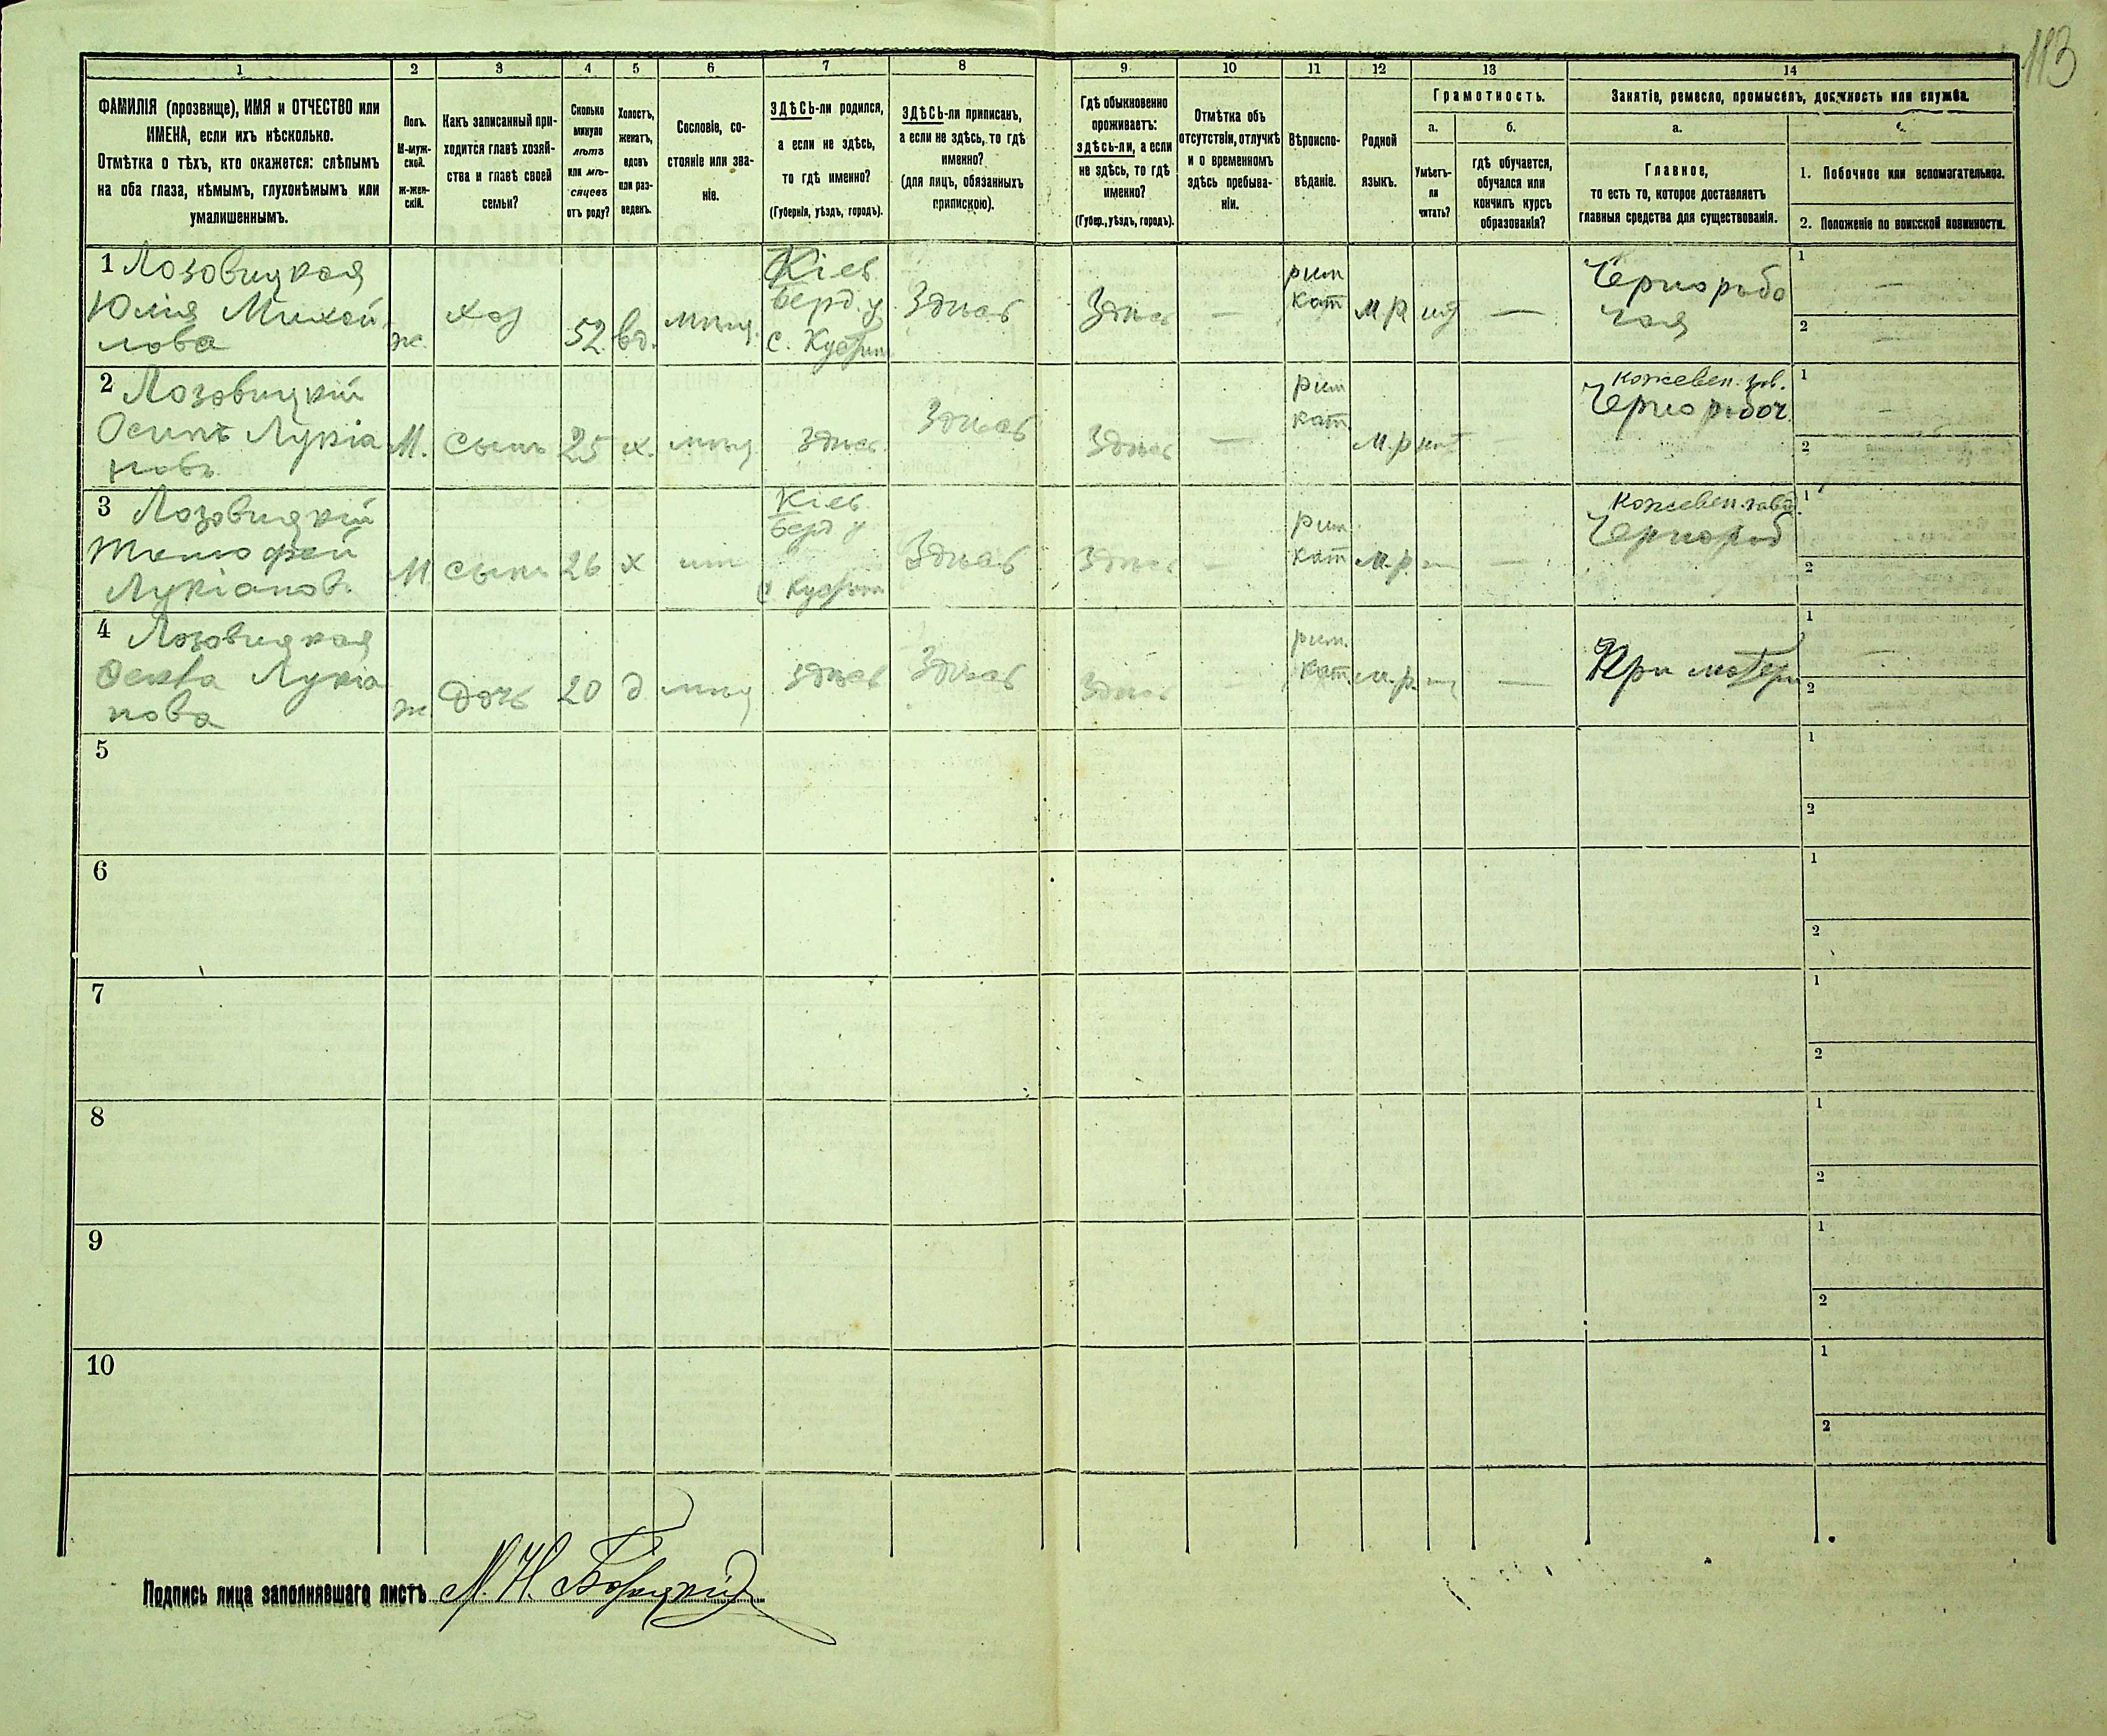 113
1 2 3 4 5 6 7 8 9 10 11 12 13 14
ФАМИЛІЯ (прозвище), ИМЯ и ОТЧЕСТВО или
ИМЕНА, если ихъ нѣсколько.
Отмѣтка о тѣхъ, кто окажется: слѣпымъ
на оба глаза, нѣмымъ, глухонѣмымъ или
умалишеннымъ.
Полъ.
М-муж-
ской.
ж-жен-
скій.
Какъ записанный при-
ходится главѣ хозяй-
ства и главѣ своей
семьи?
Сколько
минуло
лѣтъ
или мѣ-
сяцевъ
отъ роду?
Холостъ,
женатъ,
вдовъ
или раз-
веденъ.
Сословіе, со-
стояніе или зва-
ніе.
ЗДѢСЬ-ли родился,
а если не здѣсь,
то гдѣ именно?
(Губернія, уѣздъ, городъ).
ЗДѢСЬ-ли приписанъ,
а если не здѣсь, то гдѣ
именно?
(для лицъ, обязанныхъ
припискою).
Гдѣ обыкновенно
проживаетъ:
здѣсь-ли, а если
не здѣсь, то гдѣ
именно?
(Губер., уѣздъ, городъ).
Отмѣтка объ
отсутствіи, отлучкѣ
и о временномъ
здѣсь пребыва-
ніи.
Вѣроиспо-
вѣданіе.
Родной
языкъ.
Грамотность.
а.
Умѣетъ-
ли
читать?
б.
гдѣ обучается,
обучался или
кончилъ курсъ
образованія?
Занятіе, ремесло, промыселъ, должность или служба.
а.
Главное,
то есть то, которое доставляетъ
главныя средства для существованія.
1. Побочное или вспомагательное.
2. Положеніе по воинской повинности.
1 Лозовицкая
Юлія Михай
лова
ж.
хоз
52
вд.
мѣщ.
Кіев
Берд. у
Здѣсь
Здѣсь
—
рим
кат
м.р.
нѣт
—
Чернорабо
чая
1 —
2 —
2 Лозовицкій
Осипъ Лукіа
новъ
М.
сынъ
25
х.
мѣщ
здѣсь
Здѣсь
Здѣсь
—
рим
кат
м.р
нѣт
кожевен. зав.
Чернорабоч
1 —
2
3 Лозовицкій
Тимофей
Лукіанов.
М
сынъ
26
х
Кіев
Берд у
Здѣсь
Здѣсь
—
рим.
кат
м.р.
—
Кожевен. завд.
Чернораб
1
2
4 Лозовицкая
Лукіа
нова
ж
дочь
20
д
мѣщ
здѣсь
Здѣсь
Здѣсь
—
рим.
кат.
м.р.
—
При матери
1 —
2
5
1
2
6
1
2
7
1
2
8
1
2
9
1
2
10
1
2
Подпись лица заполнявшаго листъ